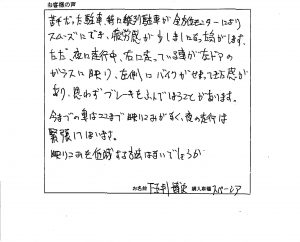 お客様の声
苦手だった駐車、特に縦列駐車が全方位モニターにより
スムーズにでき、疲労感が少しましになった気がします。
ただ、夜に走行中、右に走っている車が左ドアの
ガラスに映り、左側にバイクがせまってきた感が
あり、思わずブレーキをふんでしまうことがあります。
今までの車はここまで映りこみがなく、夜の走行は
緊張してしまいます。
映りこみを低減する方法はないでしょうか
お名前 購入車種 スペーシア